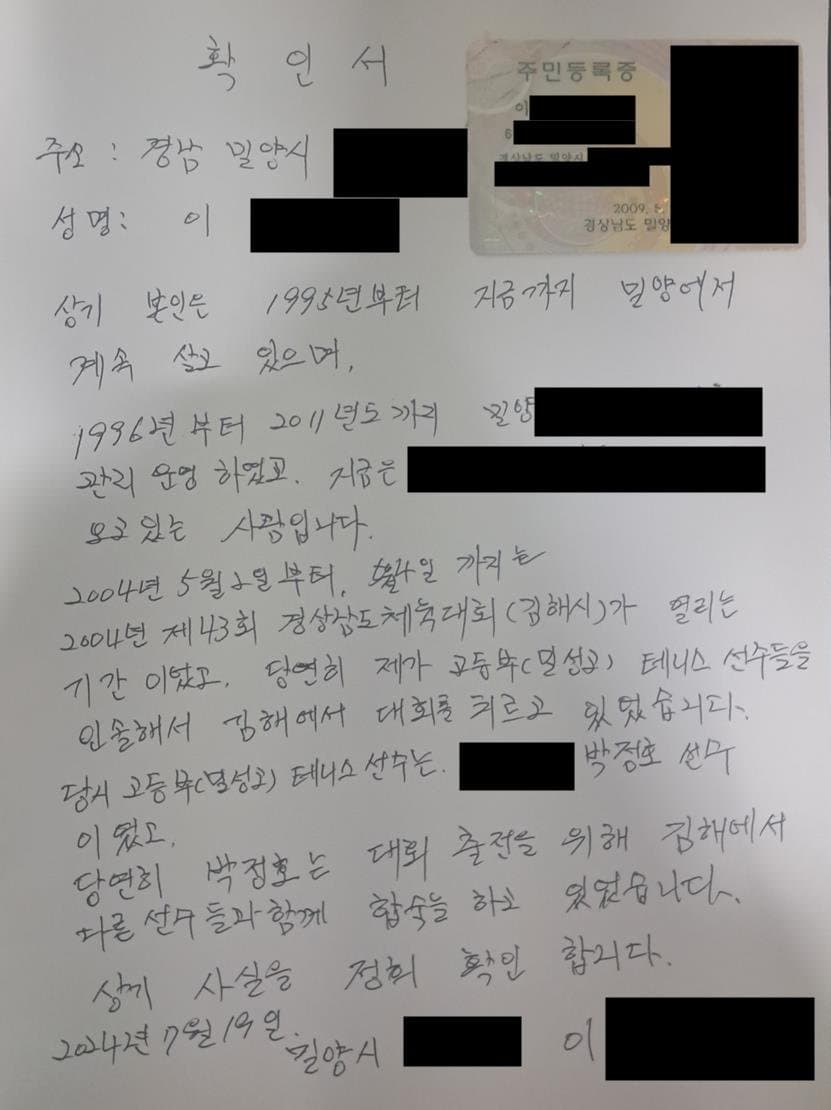 확 인 서
주민등록증
이
6
경상남도 밀양시
2009. 5.
경상남도 밀양
주소 : 경남 밀양시
성명: 이
상기 본인은 1995년부터 지금까지 밀양에서
계속 살고 있으며,
1996년부터 2011년도까지 밀양
관리 운영 하였고. 지금은
모고 있는 사람입니다.
2004년 5월 2일부터, 일 까지는
2004년 제43회 경상남도체육대회(김해시)가 열리는
기간 이었고, 당연히 제가 고등부(밀성고) 테니스 선수들을
인솔해서 김해에서 대회를 치르고 있었습니다.
당시 고등부(밀성고) 테니스 선수는. 박정호 선수
이 였고,
당연히 박정호는 대회 출전을 위해 김해에서
다른 선수들과 함께 합숙을 하고 있었습니다.
상기 사실을 정히 확인 합니다.
2024년 7월 19일.
밀양시 이